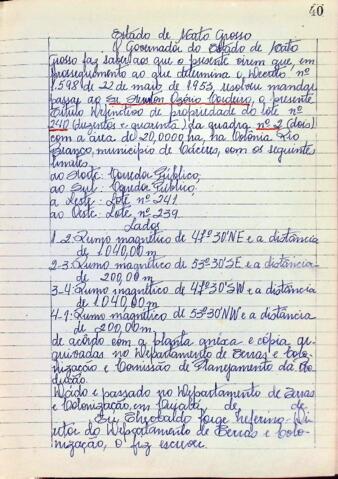 40
Estado de Mato Grosso
O Governador do Estado de Mato
Grosso faz saber aos que o presente virem que, em
prosseguimento ao que determina o Decreto nº
1.598 de 22 de maio de 1953, resolveu mandar
passar ao Sr. Ozório Cordeiro, o presente
Título Definitivo de propriedade do lote nº
240 (duzentos e quarenta) da quadra nº 2 (dois)
com a área de 20,0000 ha, na Colônia Rio
Branco, município de Cáceres, com os seguintes
limites
ao Norte: Corredor Público,
ao Sul: Corredor Público,
a Leste: Lote nº 241
ao Oeste: Lote nº 239
Lados
1-2: Rumo magnético de 47º30'NE e a distância
de 1040,00 m
2-3: Rumo magnético de 53º30'SE e a distância
de 200,00 m
3-4: Rumo magnético de 47º30'SW e a distância
de 1040,00 m
4-1: Rumo magnético de 53º30'NW e a distância
de 200,00 m
de acordo com a planta anexa e cópia, ar
quivadas no Departamento de Terras e Colo-
nização e Comissão de Planejamento da Pro
dução.
Dado e passado no Departamento de Terras
e Colonização, em Cuiabá, de de
Eu Jorge Zeferino Di
retor do Departamento de Terras e Colo-
nização, o fiz escrever.